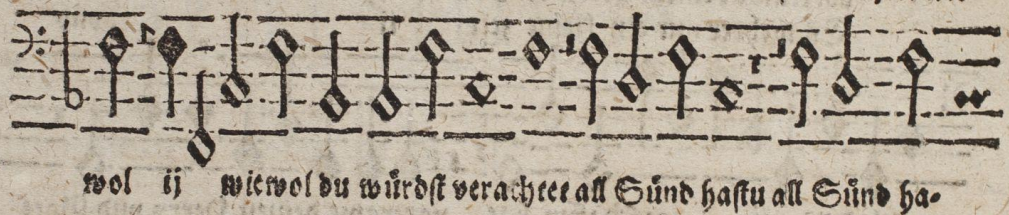 wol ij wiewol du würdſt verachtet all Sünd haſtu all Sünd ha-